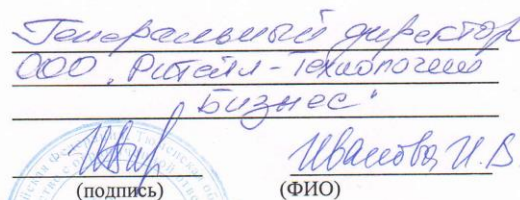 Генеральный директор
ООО „Ритейл-Технологии
Бизнес“
Иванова И.В
(подпись) (ФИО)